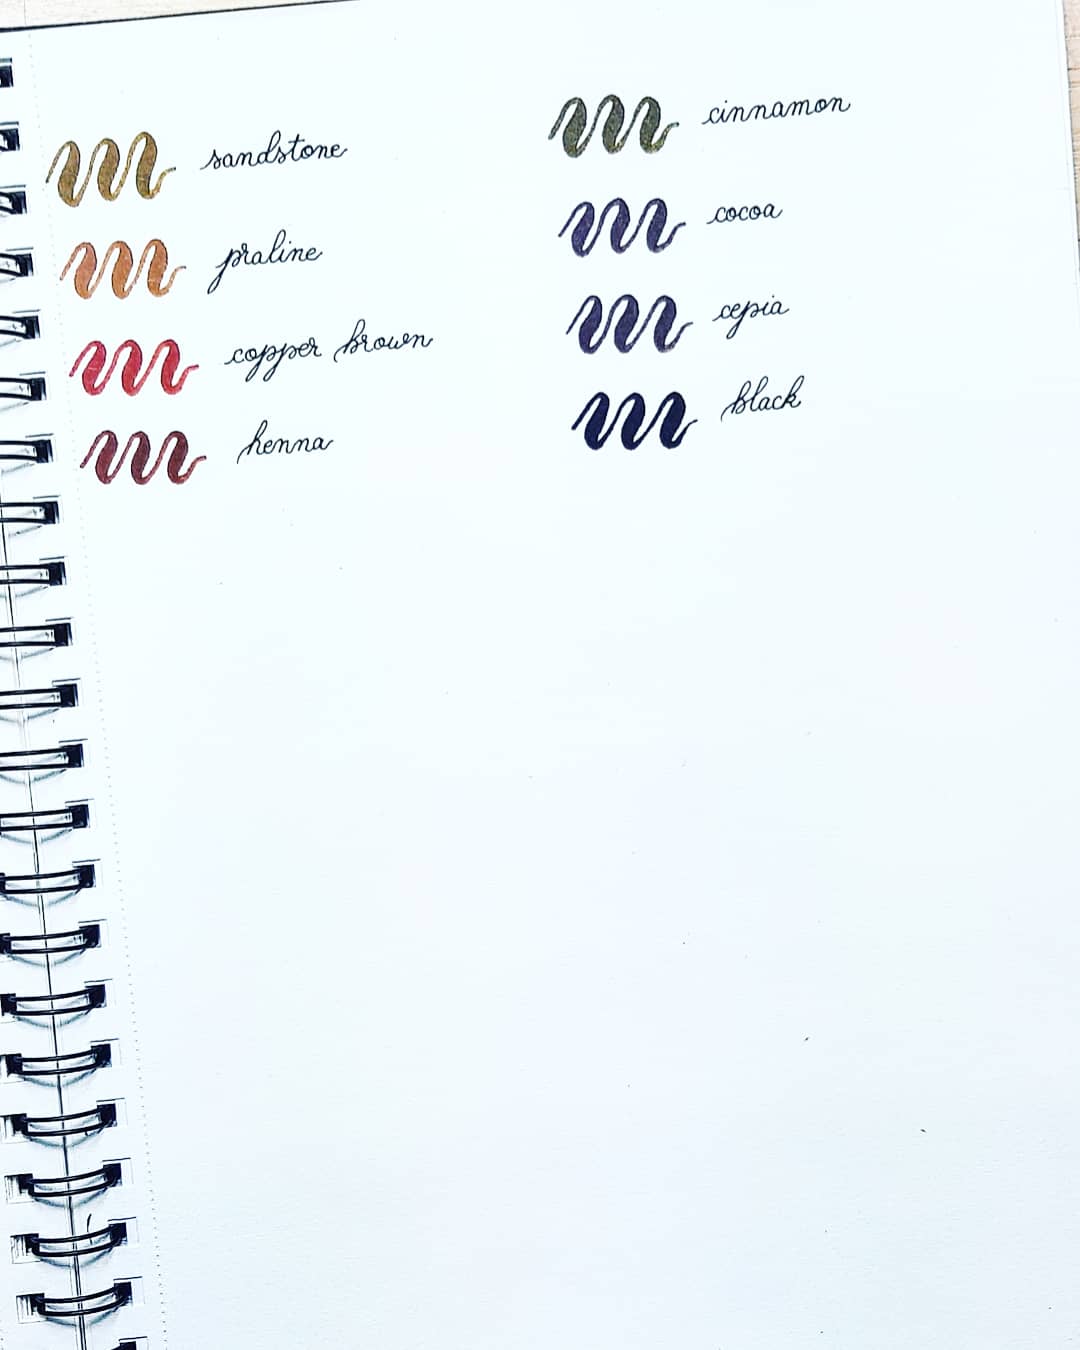 sandstone
praline
copper brown
henna
cinnamon
cocoa
cepia
black